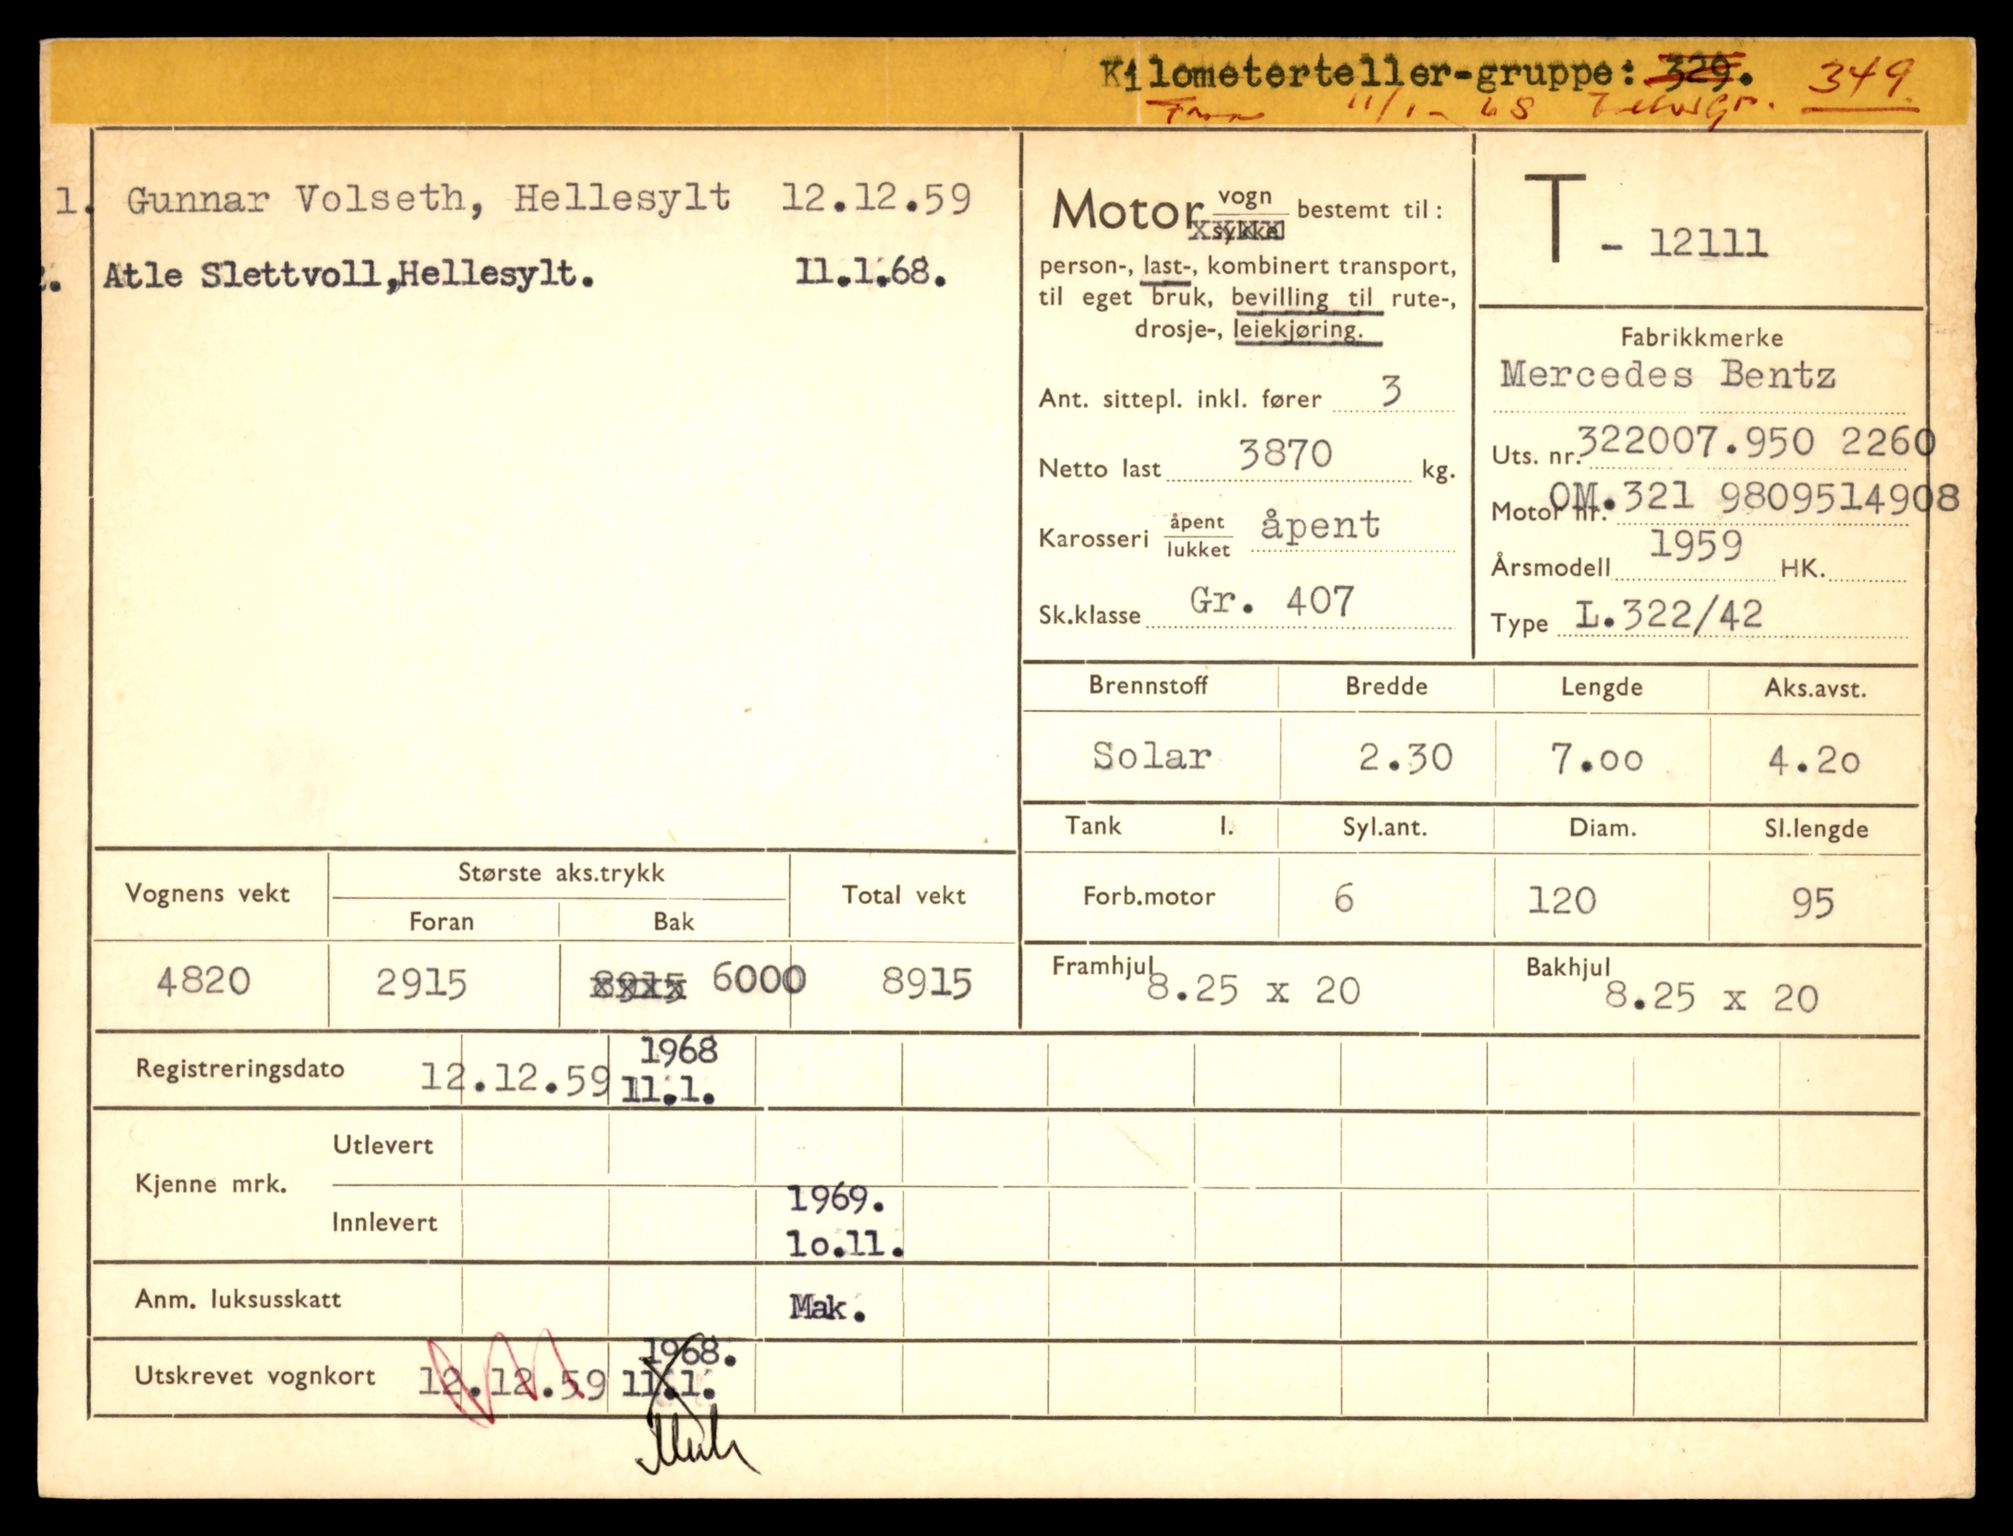 Kilometerteller-gruppe: 329. 349
11/1-68
1. Gunnar Volseth, Hellesylt 12.12.59
2. Atle Slettvoll,Hellesylt. 11.1.68.
Motor vogn sykkel bestemt til:
person-, last-, kombinert transport,
til eget bruk, bevilling til rute-,
drosje-, leiekjøring.
Ant. sittepl. inkl. fører 3
Netto last 3870 kg.
Karosseri åpent lukket åpent
Sk.klasse Gr. 407
T - 12111
Fabrikkmerke
Mercedes Bentz
Uts. nr. 322007.950 2260
Motor nr. OM.321 9809514908
Årsmodell 1959 HK.
Type L.322/42
Brennstoff Bredde Lengde Aks.avst.
Solar 2.30 7.oo 4.2o
Tank l. Syl.ant. Diam. Sl.lengde
Forb.motor 6 120 95
Framhjul 8.25 x 20 Bakhjul 8.25 x 20
Vognens vekt Største aks.trykk Total vekt
Foran Bak
4820 2915 8915 6000 8915
Registreringsdato 12.12.59 1968 11.1.
Kjenne mrk. Utlevert
Innlevert 1969. 1o.11.
Anm. luksusskatt Mak.
Utskrevet vognkort 12.12.59 1968. 11.1.
Mak